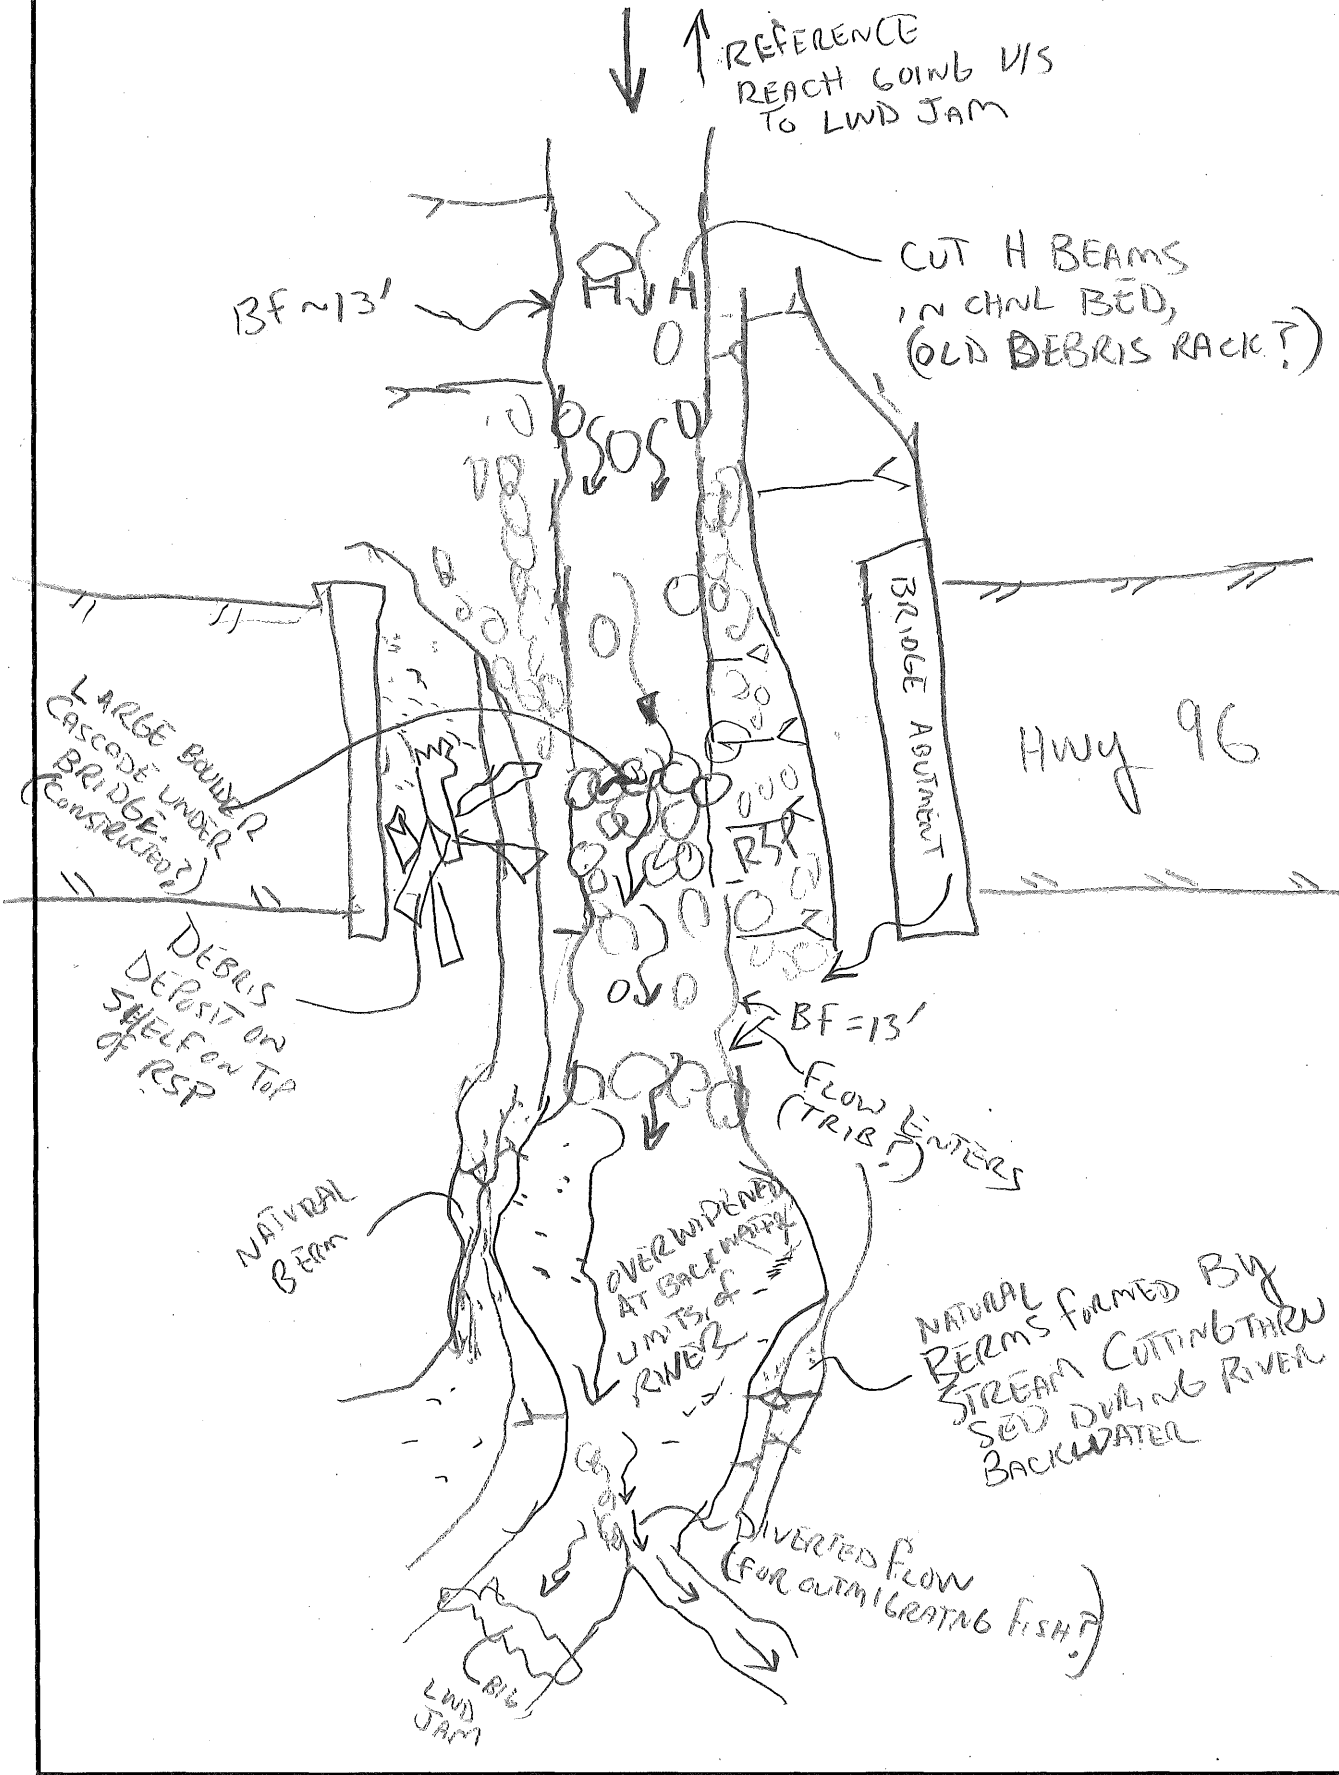 REFERENCE
REACH GOING U/S
TO LWD JAM
CUT H BEAMS
IN CHNL BED,
(OLD DEBRIS RACK?)
Bf ~13'
BRIDGE ABUTMENT
Hwy 96
LARGE BOULDER
CASCADE UNDER
BRIDGE.
(CONSTRUCTED?)
RSP
DEBRIS
DEPOSIT ON
SHELF ON TOP
OF RSP
BF =13'
FLOW ENTERS
(TRIB?)
NATURAL
BERM
OVERWIDENED
AT BACKWATER
LIMITS of
RIVER
NATURAL
BERMS FORMED By
STREAM CUTTING THRU
SED DURING RIVER
BACKWATER
DIVERTED FLOW
(FOR OUTMIGRATNG FISH?)
BIG
LWD
JAM